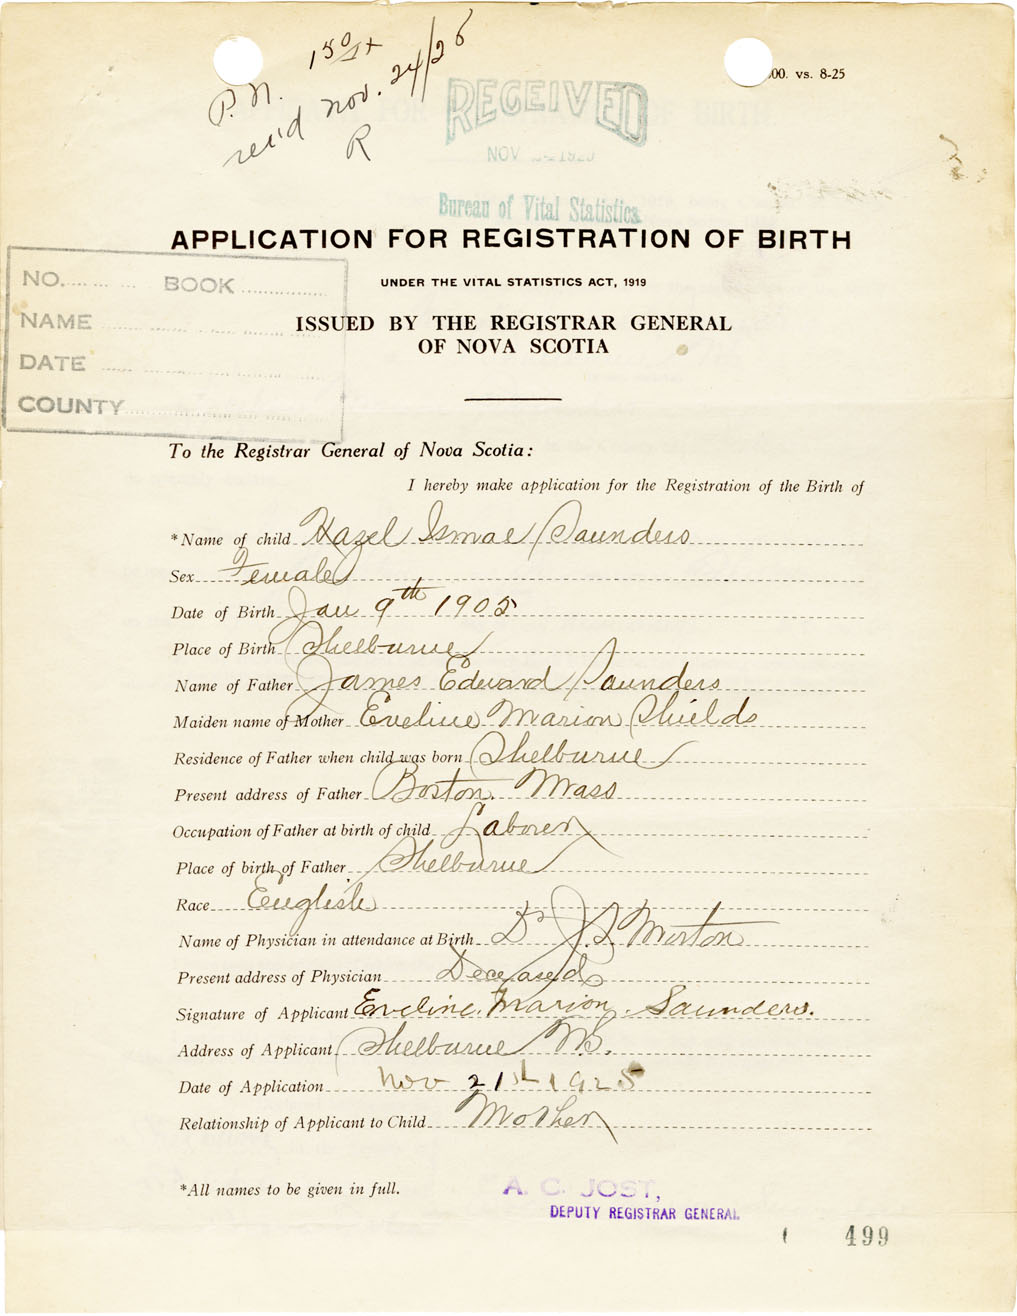 P.N. 1 50
rec'd Nov. 24/26
R
00. vs. 8-25
RECEIVED
NOV
Bureau of Vital Statistics
APPLICATION FOR REGISTRATION OF BIRTH
UNDER THE VITAL STATISTICS ACT, 1919
ISSUED BY THE REGISTRAR GENERAL
OF NOVA SCOTIA
NO. BOOK
NAME
DATE
COUNTY
To the Registrar General of Nova Scotia:
I hereby make application for the Registration of the Birth of
*Name of child Hazel Ismae Saunders
Sex Female
Date of Birth Jan 9th 1905
Place of Birth Shelburne
Name of Father James Edward Saunders
Maiden name of Mother Eveline Marion Shields
Residence of Father when child was born Shelburne
Present address of Father Boston. Mass
Occupation of Father at birth of child Laborer
Place of birth of Father Shelburne
Race English
Name of Physician in attendance at Birth Dr J. S. Morton
Present address of Physician Deceased
Signature of Applicant Eveline. Marion. Saunders.
Address of Applicant Shelburne N.S.
Date of Application Nov 21st 1925
Relationship of Applicant to Child Mother
*All names to be given in full.
A. C. JOST,
DEPUTY REGISTRAR GENERAL
499